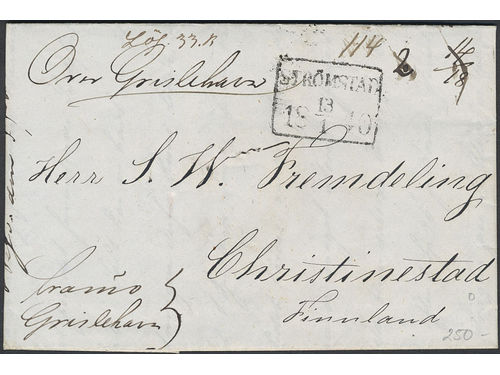 Löf. 33. k
114 2
Over Grislehavn
STRÖMSTAD
13
18 1 40
Herr S. W. Fremdeling
Christinestad
Finnland
franco
Grislehavn
250-